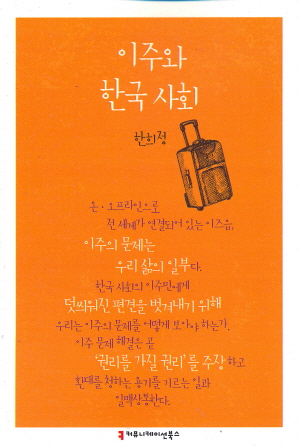 이주와
한국 사회
한희정
온·오프라인으로
전 세계가 연결되어 있는 이즈음,
이주의 문제는
우리 삶의 일부다.
한국 사회의 이주민에게
덧씌워진 편견을 벗겨내기 위해
우리는 이주의 문제를 어떻게 보아야 하는가.
이주 문제 해결은 곧
'권리를 가질 권리'를 주장하고
환대를 청하는 용기를 기르는 일과
일맥상통한다.
커뮤니케이션북스